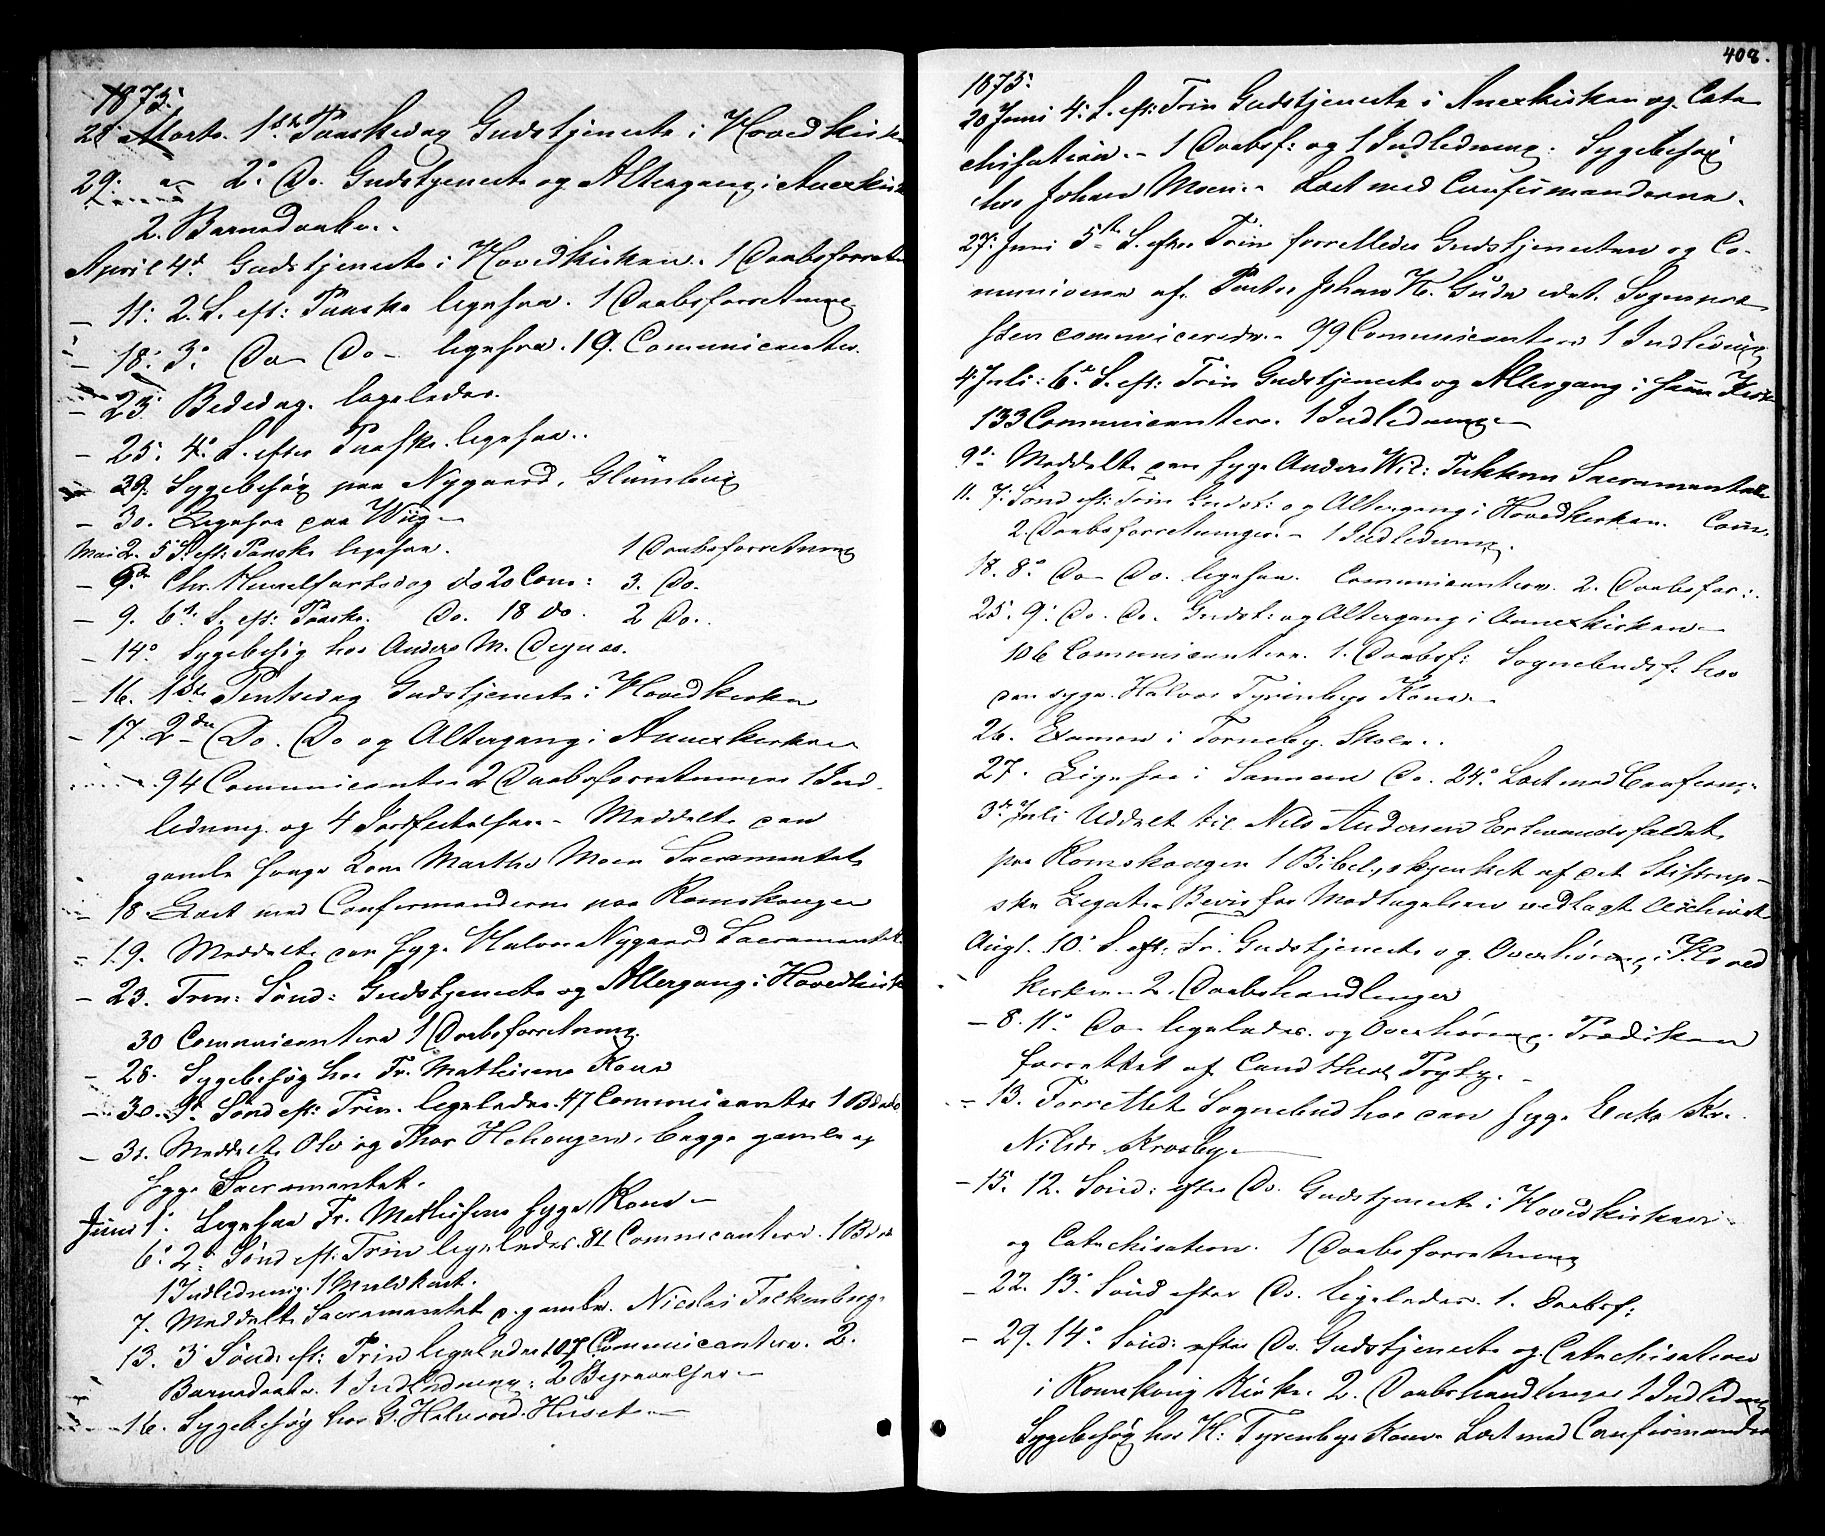 1875.
28. Marts. 1ste Paaskedag Gudstjeneste i Hovedkirk
29. 2. Do. Gudstjeneste og Altergang i Anexkirk
2. Barnedaabe.
April 4de Gudstjeneste i Hovedkirken. 1 Daabsforretn
– 11. 2. S. eft: Paaske ligesaa. 1 Daabsforretning
– 18. 3. Do Do – ligesaa. 19. Communicanter.
– 23. Bededag. ligeledes.
– 25. 4. S. efter Paaske ligesaa.
– 29. Sygebesøg paa Nygaard,
– 30. Ligesaa paa Wiig –
Mai 2. 5 S. eft: Paaske ligesaa. 1 Daabsforretning
– 6te Chr. Himmelfartsdag do 20 Com: 3. Do.
– 9. 6te S. eft: Paaske. Do. 18 do. 2 Do.
– 14. Sygebesøg hos Anders M.
– 16. 1ste Pintsedag Gudstjeneste i Hovedkirken
– 17. 2den Do. Do og Altergang i Annexkirken
94 Communicanter 2 Daabsforretninger 1 Ind-
ledning og 4 Jordfæstelser. – Meddelte den
gamle syge Kone Marthe Moen Sacramentet
– 18. Læst med Confirmanderne paa Romskougen
– 19. Meddelte den syge Halvor Nygaard Sacramentet
– 23. Trin: Sønd: Gudstjeneste og Altergang i Hovedkirk
30 Communicanter 1 Daabsforretning.
– 28. Sygebesøg hos Fr. Mathisens Kone
– 30. 1ste Sønd eft: Trin. ligeledes. 47 Communicanter 1
– 31. Meddelt Ole og Thor begge gamle og
syge Sacramentet.
Juni 1. Ligesaa Fr. Mathisens syge Kone –
6. 2. Sønd eft: Trin ligeledes. 81 Communicanter. 1
1 Indledning. 1 Muldkast.
7. Meddelte Sacramentet d. gamle. Nicolai Falkenberg.
13. 3 Sønd. eft: Trin ligeledes 107 Communicanter. 2.
Barnedaabe. 1 Indledning; 2 Begravelser –
– 16. Sygebesøg hos G. Halvord. Huset –
408.
1875.
20 Juni 4. S. eft: Trin Gudstjeneste i Anexkirken og Cate
chisation. – 1 Daabsf: og 1 Indledning. Sygebesøg
hos Johan Moen. – Læst med Confirmanderne.
27. Juni 5te S. efter Trin forrettedes Gudstjenesten og Co-
munionen af Pastor Johan H. Gude idet Sognepræ
sten communicerede. – 99 Communicanter 1 Indledning
4. Juli: 6te S. eft: Trin Gudstjeneste og Altergang i samme Kirke
133 Communicanter. 1 Indledning –
9. Meddelte den syge Anders Sacramentet
11. 7. Sønd eft: Trin Gudst: og Altergang i Hovedkirken. Com.
2. Daabsforretninger. – 1 Indledning.
18. 8. Do Do. ligesaa. Communicanter. 2. Daabsfor:
25. 9. Do. Do. Gudst: og Altergang i Annexkirken –
106 Communicanter. 1. Daabsf: Sognebudsf: hos
den syge Halvor Tyrinbyes Kone –
26. Examen i Torneby Skole.
27. Ligesaa i Sannæs Do. 24. Læst med Confirm:
3de Juli Uddelt til Nils Andersen
paa Romskougen 1 Bibel, skjenket af det
ske Legat. Bevis for Modtagelsen vedlagt Archivet
Augt. 10. S. eft: Tr. Gudstjeneste og Overhøring i Hoved
kirken. 2. Daabshandlinger
– 8. 11. Do ligeledes. og Overhøring. Prædiken
forrettet af Cand theol
– 13. Forrettet Sognebud hos den syge Enke
Nilsdr Krosby –
– 15. 12. Sønd: efter Do. Gudstjeneste i Hovedkirken
og Catechisation. 1 Daabsforretning
– 22. 13. Sønd efter Do. ligeledes. 1. Daabsf:
– 29. 14. Sønd: efter Do. Gudstjeneste og Catechisation
i Romskoug Kirke. 2. Daabshandlinger 1 Indledn
Sygebesøg hos H. Tyrenbyes Kone Læst med Confirmander